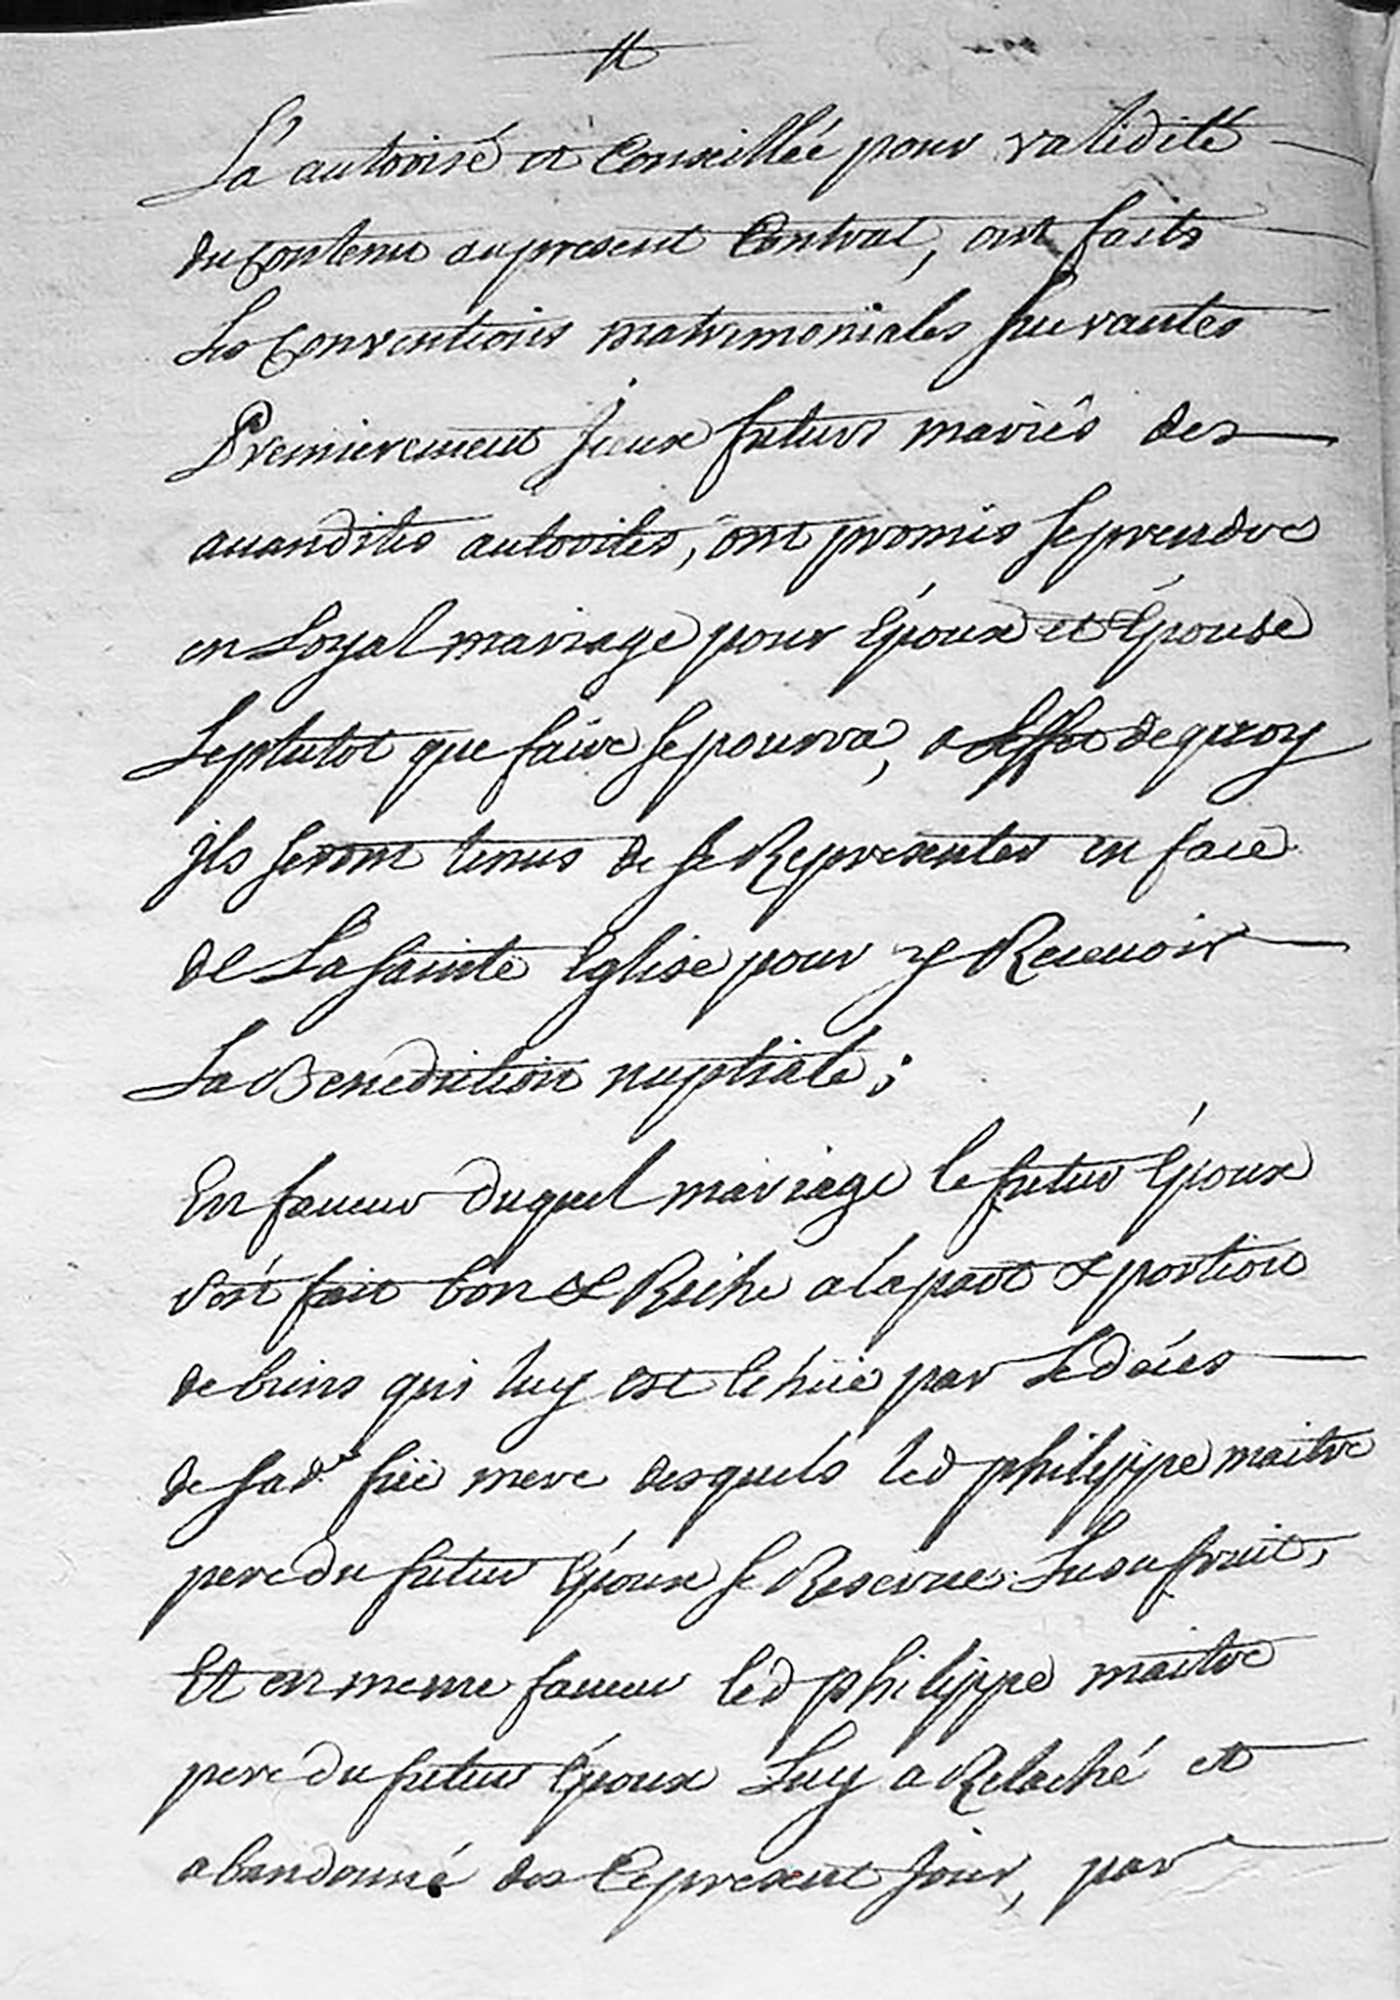 L'a autorisé et Conseillée pour validité
du contenu au present Contrat, ont faits
Les Conventions matrimoniales suivantes
Premierement Iceux futurs mariés des
auandites autorites, ont promis se prendre
en Loyal mariage pour Époux et Épouse
Le plutot que faire se pourra, a Effet de quoy
ils seront tenus de se Representer en face
de La sainte Eglise pour y Receuoir
La Benediction nuptiale;
En faueur duquel mariage le futur Époux
s'est fait bon & Riche a la part & portion
de biens qui luy est Echüe par Le déces
de sad.e füe mere desquels led philippe maitre
pere du futur Époux se Reserue Lusufruit,
Et en meme faueur led philippe maitre
pere du futur Époux Luy a Relaché et
abandonné des Le present Jour, par